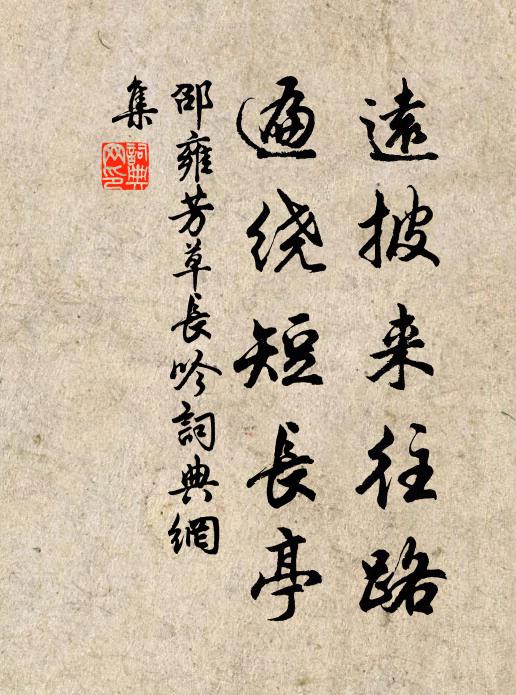 遠披来往路
遍绕短長亭
邵雍芳草長吟詞典網
集
詞典網印